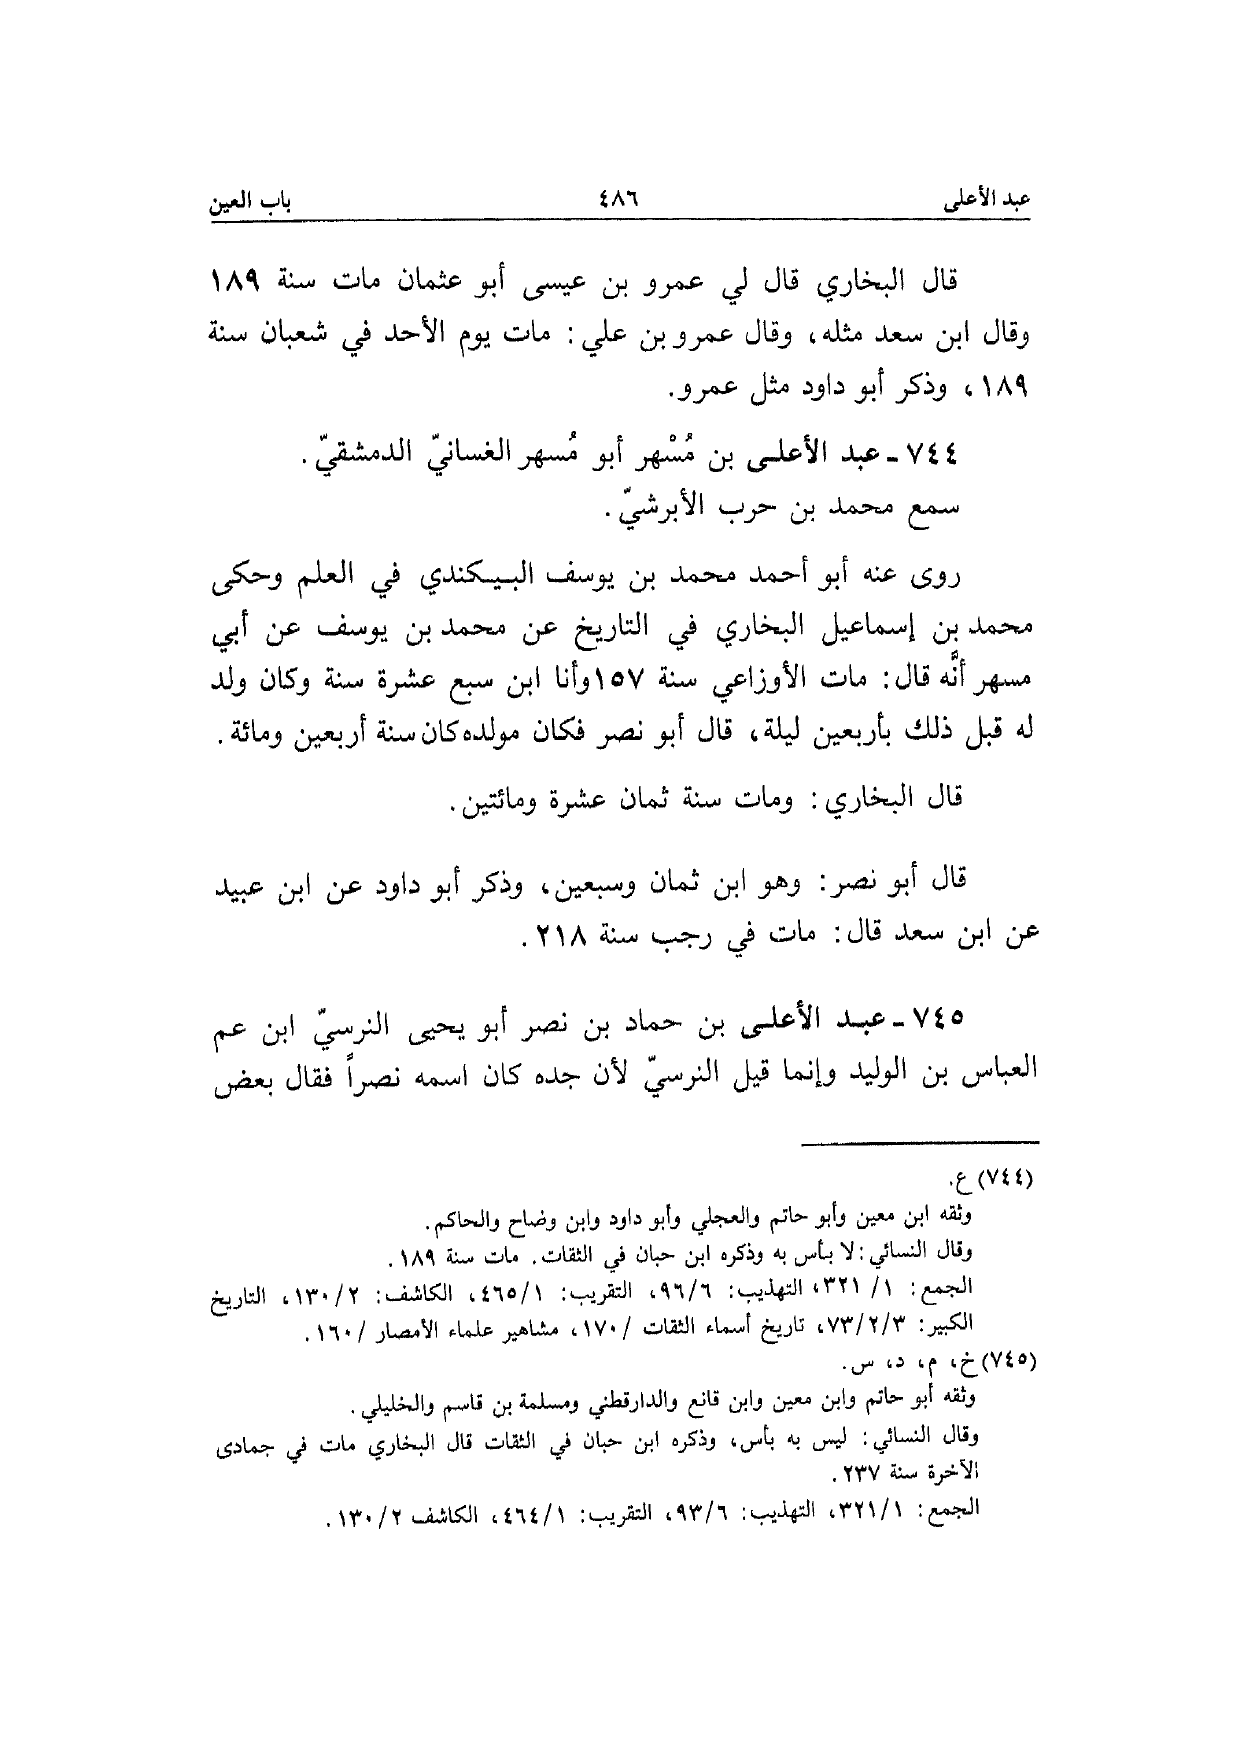 عبد الأعلى ٤٨٦ باب العين
قال البخاري قال لي عمرو بن عيسى أبو عثمان مات سنة ١٨٩
وقال ابن سعد مثله، وقال عمرو بن علي: مات يوم الأحد في شعبان سنة
١٨٩، وذكر أبو داود مثل عمرو.
٧٤٤ - عبد الأعلى بن مُسْهر أبو مُسهر الغسانيّ الدمشقيّ.
سمع محمد بن حرب الأبرشيّ.
روى عنه أبو أحمد محمد بن يوسف البيكندي في العلم وحكى
محمد بن إسماعيل البخاري في التاريخ عن محمد بن يوسف عن أبي
مسهر أنَّه قال: مات الأوزاعي سنة ١٥٧ وأنا ابن سبع عشرة سنة وكان ولد
له قبل ذلك بأربعين ليلة، قال أبو نصر فكان مولده كان سنة أربعين ومائة.
قال البخاري: ومات سنة ثمان عشرة ومائتين.
قال أبو نصر: وهو ابن ثمان وسبعين، وذكر أبو داود عن ابن عبيد
عن ابن سعد قال: مات في رجب سنة ٢١٨.
٧٤٥ - عبد الأعلى بن حماد بن نصر أبو يحيى النرسيّ ابن عم
العباس بن الوليد وإنما قيل النرسيّ لأن جده كان اسمه نصراً فقال بعض
(٧٤٤) ع.
وثقه ابن معين وأبو حاتم والعجلي وأبو داود وابن وضاح والحاكم.
وقال النسائي: لا بأس به وذكره ابن حبان في الثقات. مات سنة ١٨٩.
الجمع: ١/ ٣٢١، التهذيب: ٩٦/٦، التقريب: ٤٦٥/١، الكاشف: ١٣٠/٢، التاريخ
الكبير: ٧٣/٢/٣، تاريخ أسماء الثقات /١٧٠، مشاهير علماء الأمصار /١٦٠.
(٧٤٥) خ، م، د، س.
وثقه أبو حاتم وابن معين وابن قانع والدارقطني ومسلمة بن قاسم والخليلي.
وقال النسائي: ليس به بأس، وذكره ابن حبان في الثقات قال البخاري مات في جمادى
الآخرة سنة ٢٣٧.
الجمع: ٣٢١/١، التهذيب: ٩٣/٦، التقريب: ٤٦٤/١، الكاشف ١٣٠/٢.